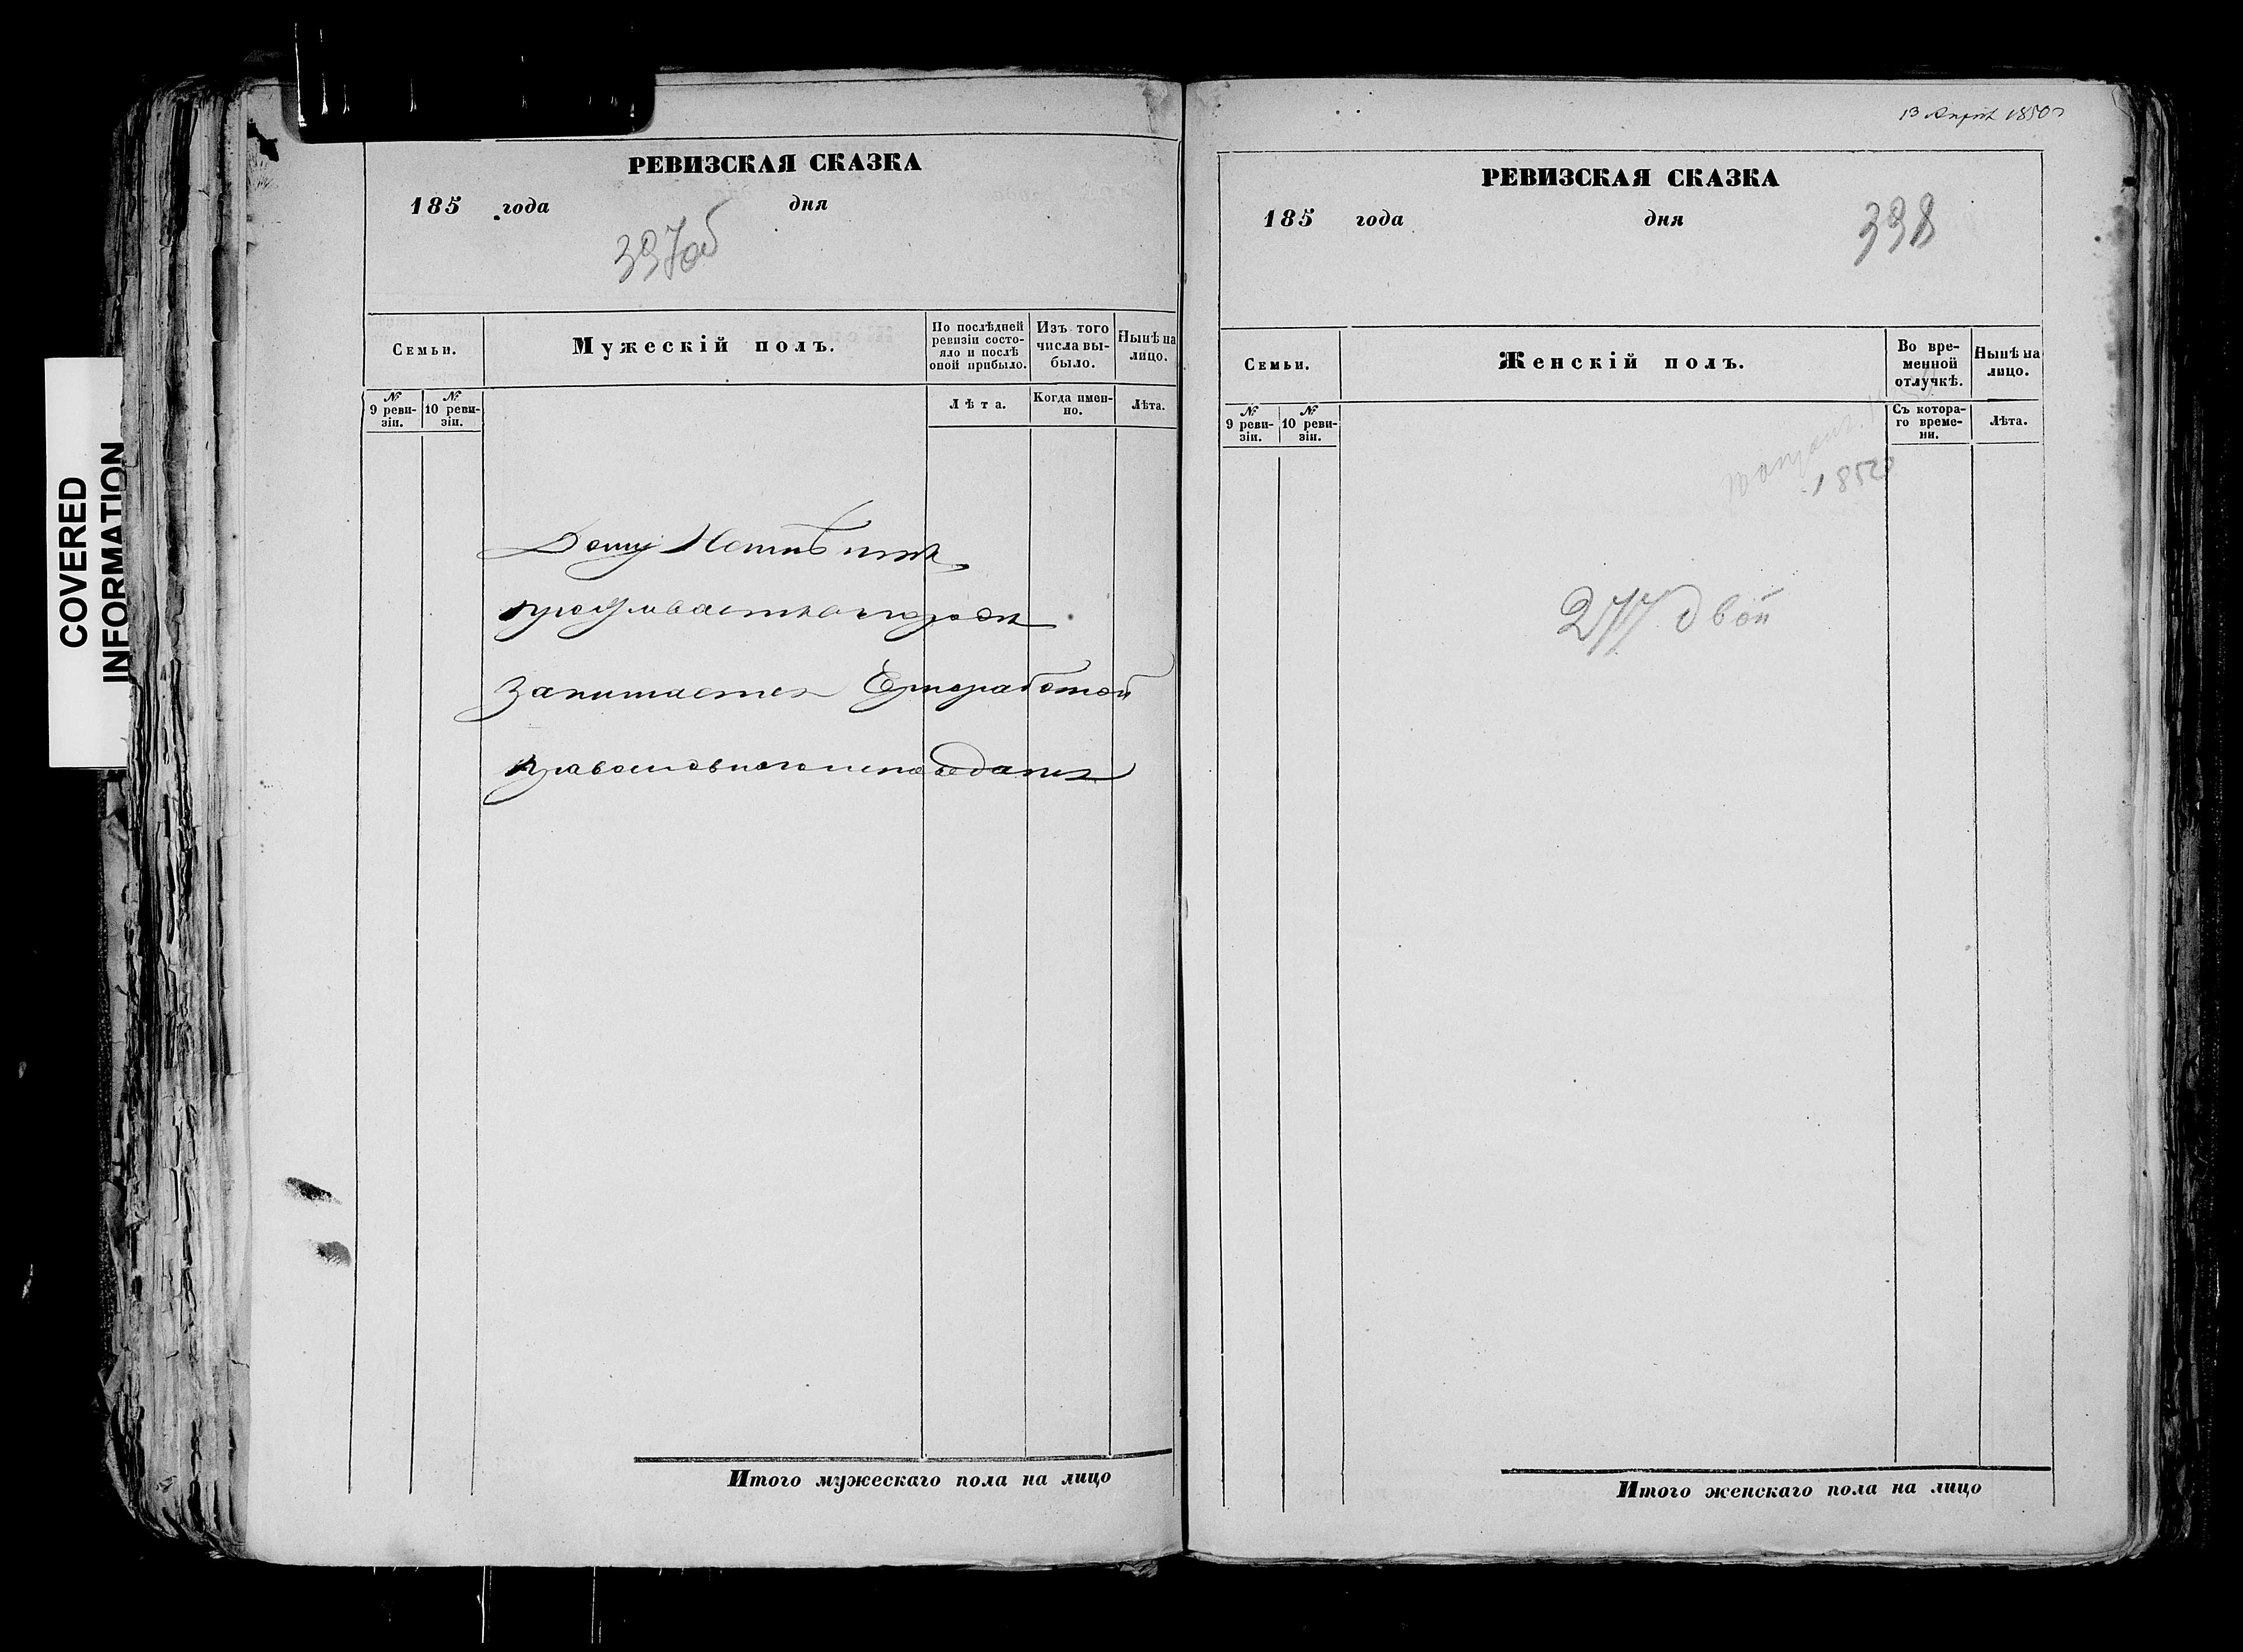 COVERED
INFORMATION
РЕВИЗСКАЯ СКАЗКА
185 года дня
397об
Семьи.
Мужескій полъ.
По послѣдней
ревизіи состо-
яло и послѣ
оной прибыло.
Изъ того
числа вы-
было.
Нынѣ на
лицо.
№
9 реви-
зіи.
№
10 реви-
зіи.
Лѣта.
Когда имен-
но.
Лѣта.
Дому
Занимается
православного исповедания
Итого мужескаго пола на лицо
13 1850
РЕВИЗСКАЯ СКАЗКА
185 года дня
398
Семьи.
Женскій полъ.
Во вре-
менной
отлучкѣ.
Нынѣ на
лицо.
№
9 реви-
зіи.
№
10 реви-
зіи.
Съ котора-
го време-
ни.
Лѣта.
277 двой
Итого женскаго пола на лицо